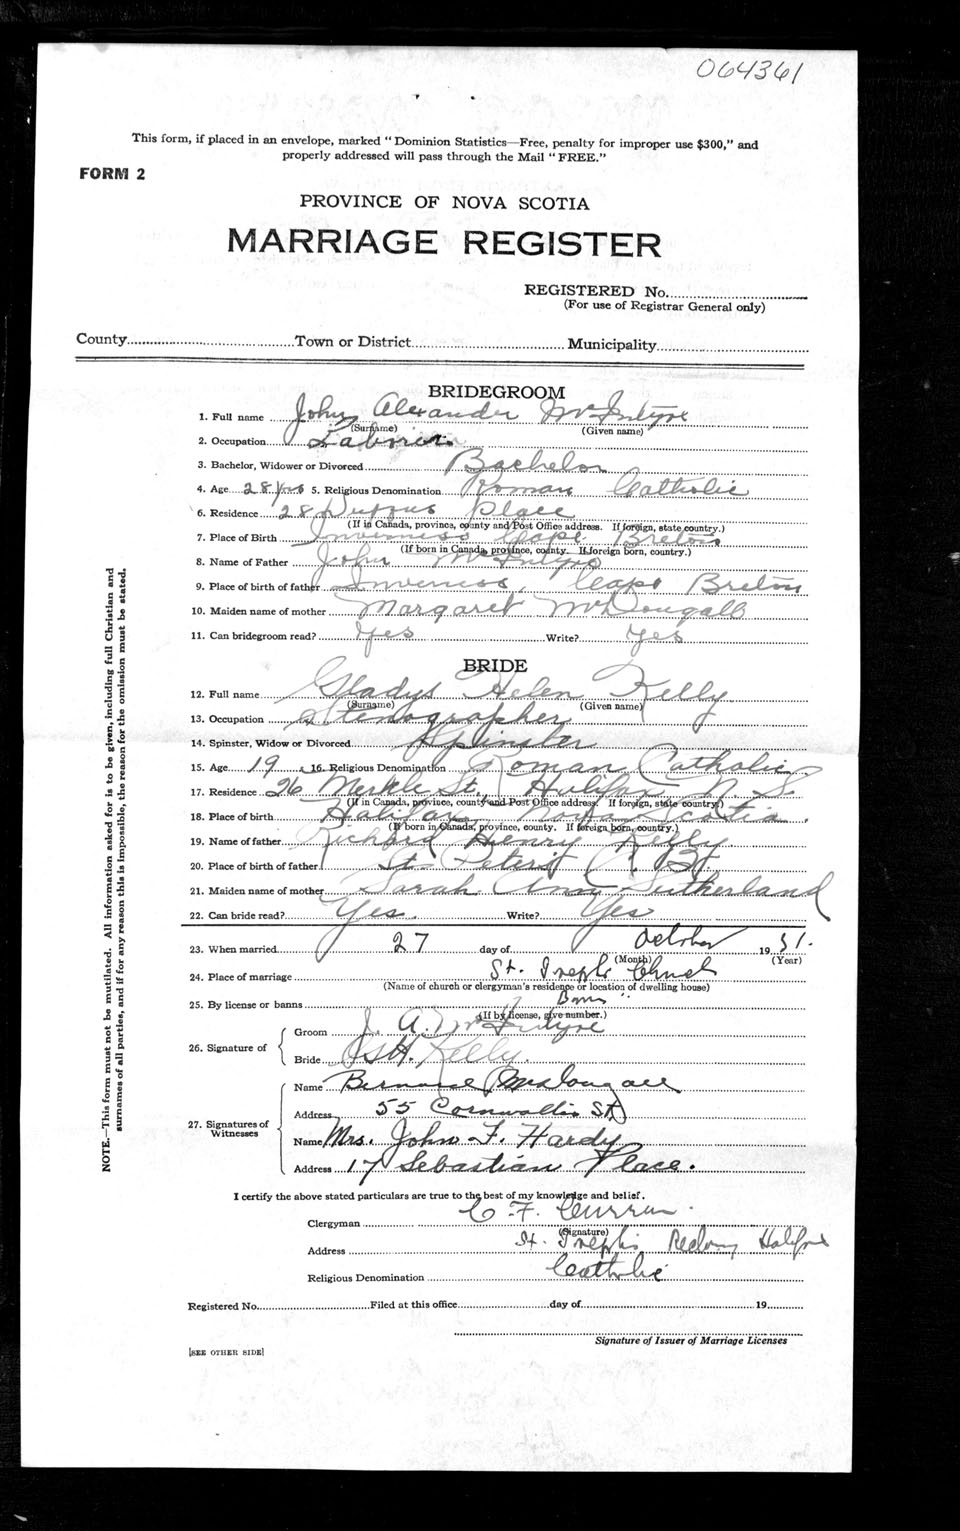 064361
This form, if placed in an envelope, marked "Dominion Statistics—Free, penalty for improper use $300," and
properly addressed will pass through the Mail "FREE."
FORM 2
PROVINCE OF NOVA SCOTIA
MARRIAGE REGISTER
REGISTERED No.
(For use of Registrar General only)
County Town or District Municipality
BRIDEGROOM
1. Full name John Alexander McIntyre
(Surname) (Given name)
2. Occupation Laborer
3. Bachelor, Widower or Divorced Bachelor
4. Age 28 yrs 5. Religious Denomination Roman Catholic
6. Residence 28 Duffus Place
(If in Canada, province, county and Post Office address. If foreign, state country.)
7. Place of Birth Inverness Cape Breton
(If born in Canada, province, county. If foreign born, country.)
8. Name of Father John McIntyre
9. Place of birth of father Inverness, Cape Breton
10. Maiden name of mother Margaret McDougall
11. Can bridegroom read? Yes Write? Yes
BRIDE
12. Full name Gladys Helen Kelly
(Surname) (Given name)
13. Occupation Stenographer
14. Spinster, Widow or Divorced Spinster
15. Age 19 16. Religious Denomination Roman Catholic
17. Residence 26 Merkle St., Halifax N.S.
(If in Canada, province, county and Post Office address. If foreign, state country.)
18. Place of birth Halifax, Nova Scotia.
(If born in Canada, province, county. If foreign born, country.)
19. Name of father Richard Henry Kelly
20. Place of birth of father St. Peters C. Bt.
21. Maiden name of mother Sarah Ann Sutherland
22. Can bride read? Yes. Write? Yes
23. When married 27 day of October 19 51.
(Month) (Year)
24. Place of marriage St. Joseph's Church
(Name of church or clergyman's residence or location of dwelling house)
25. By license or banns Banns
(If by license, give number.)
26. Signature of
Groom J. A. McIntyre
Bride G. H. Kelly.
27. Signatures of Witnesses
Name Bernard McDougall
Address 55 Cornwallis St
Name Mrs. John F. Hardy
Address 17 Sebastian Place.
I certify the above stated particulars are true to the best of my knowledge and belief.
Clergyman C F Curran.
(Signature)
Address St. Joseph's Rectory Halifax
Religious Denomination Catholic
Registered No. Filed at this office day of 19
Signature of Issuer of Marriage Licenses
[SEE OTHER SIDE]
NOTE.—This form must not be mutilated. All information asked for is to be given, including full Christian and
surnames of all parties, and if for any reason this is impossible, the reason for the omission must be stated.